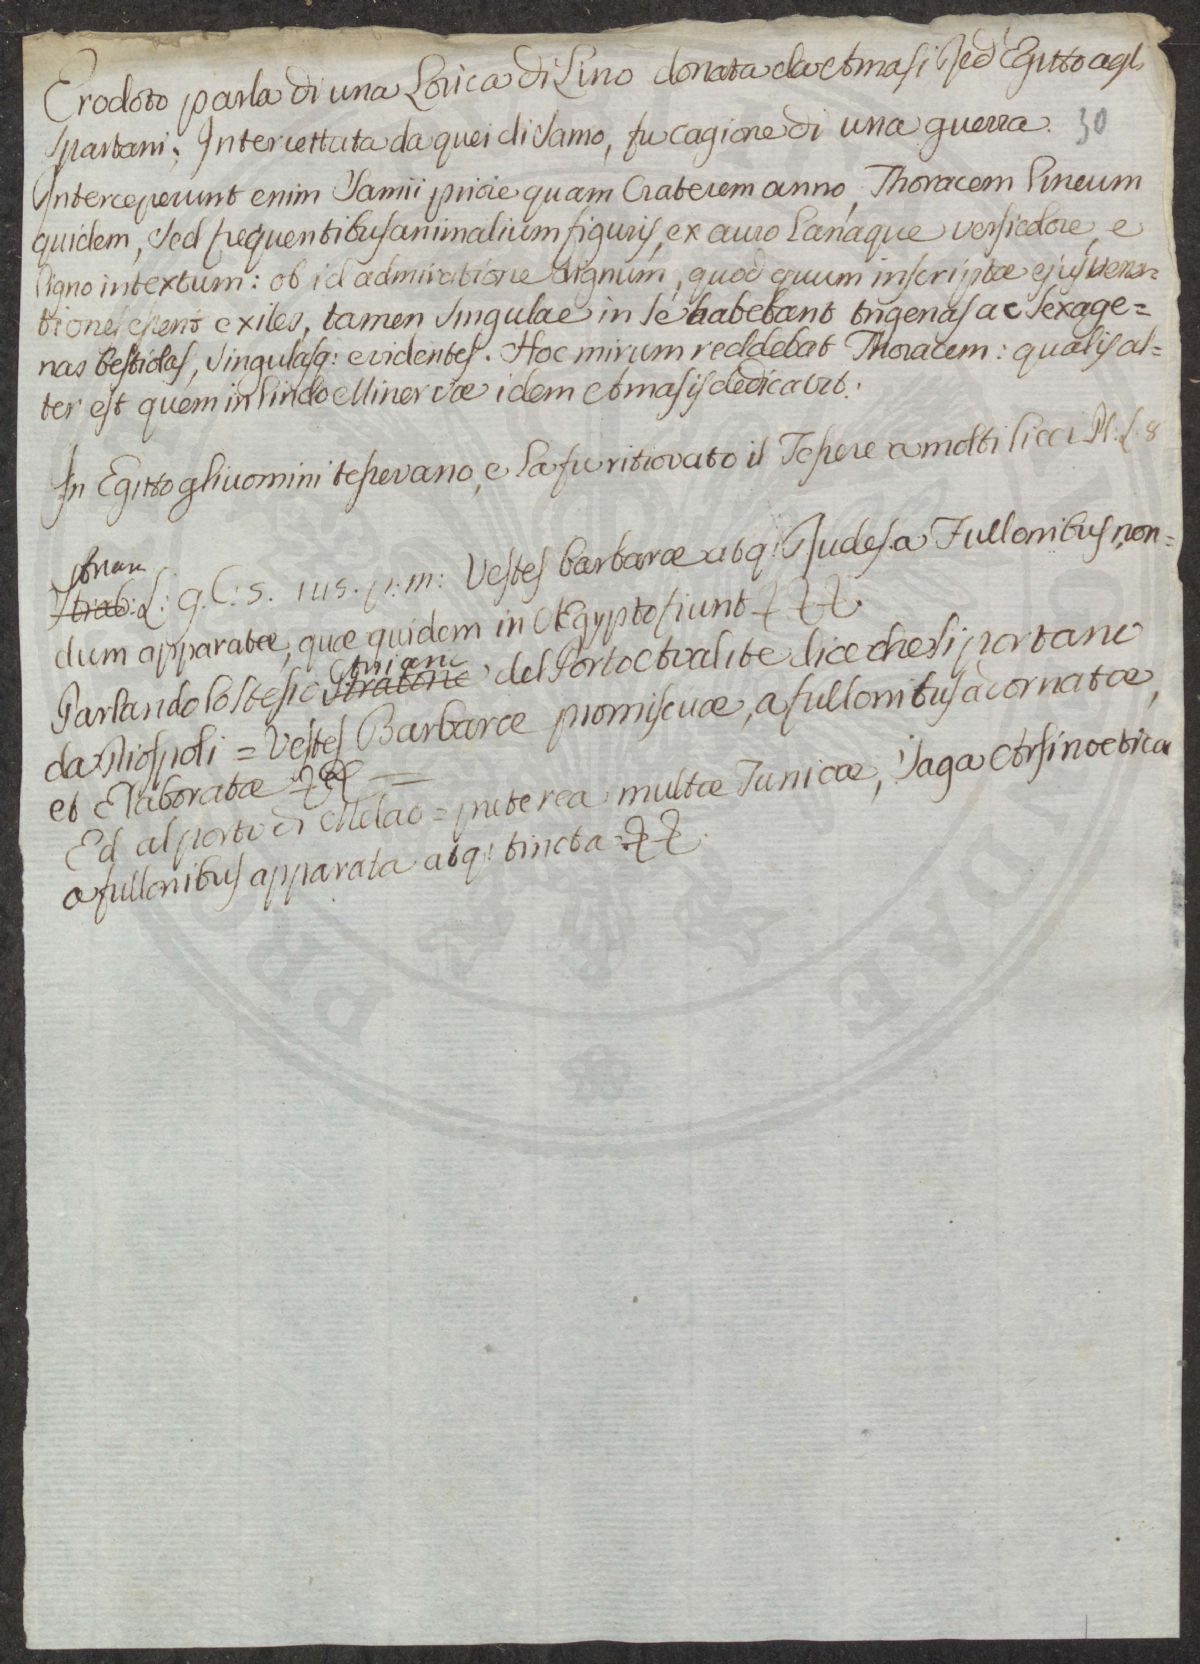 Erodoto parla di una Lorica di Lino donata da Amasi Re d'Egitto agli
Spartani; Intercettata da quei di Samo, fu cagione di una guerra. 30
Interceperunt enim Samii pridie quam Craterem anno, Thoracem lineum
quidem, sed frequentibus animalium figuris, ex auro Lanáque versicolore, e
ligno intextum: ob id admiratione dignum, quod quum inscriptæ ejus vena=
tiones essent exiles, tamen singulae in se habebant trigenas ac sexage=
nas bestiolas, singulasq: evidentes. Hoc mirum reddebat Thoracem: qualis al=
ter est quem in Lindo Minervæ idem Amasis dedicavit.
In Egitto gli uomini tessevano, e la fu ritrovato il Tessere a molti licci Pl: L: 8
Arrian
Strab: L: 9. C: 5. 115. p: m: Vestes barbaræ atq: Rudes a Fullonibus non=
dum apparatæ, quæ quidem in Ægypto fiunt
Arriano
Parlando lo stesso Stratone del Porto Avalite dice che si portano
da Diospoli = Vestes Barbaræ promiscuæ, a fullonibus adornatæ,
et Elaboratæ =
Ed al porto di Malao = preterea multæ Tunicæ, Saga Arsinoetica
a fullonibus apparata atq: tincta =
PRO
DAE